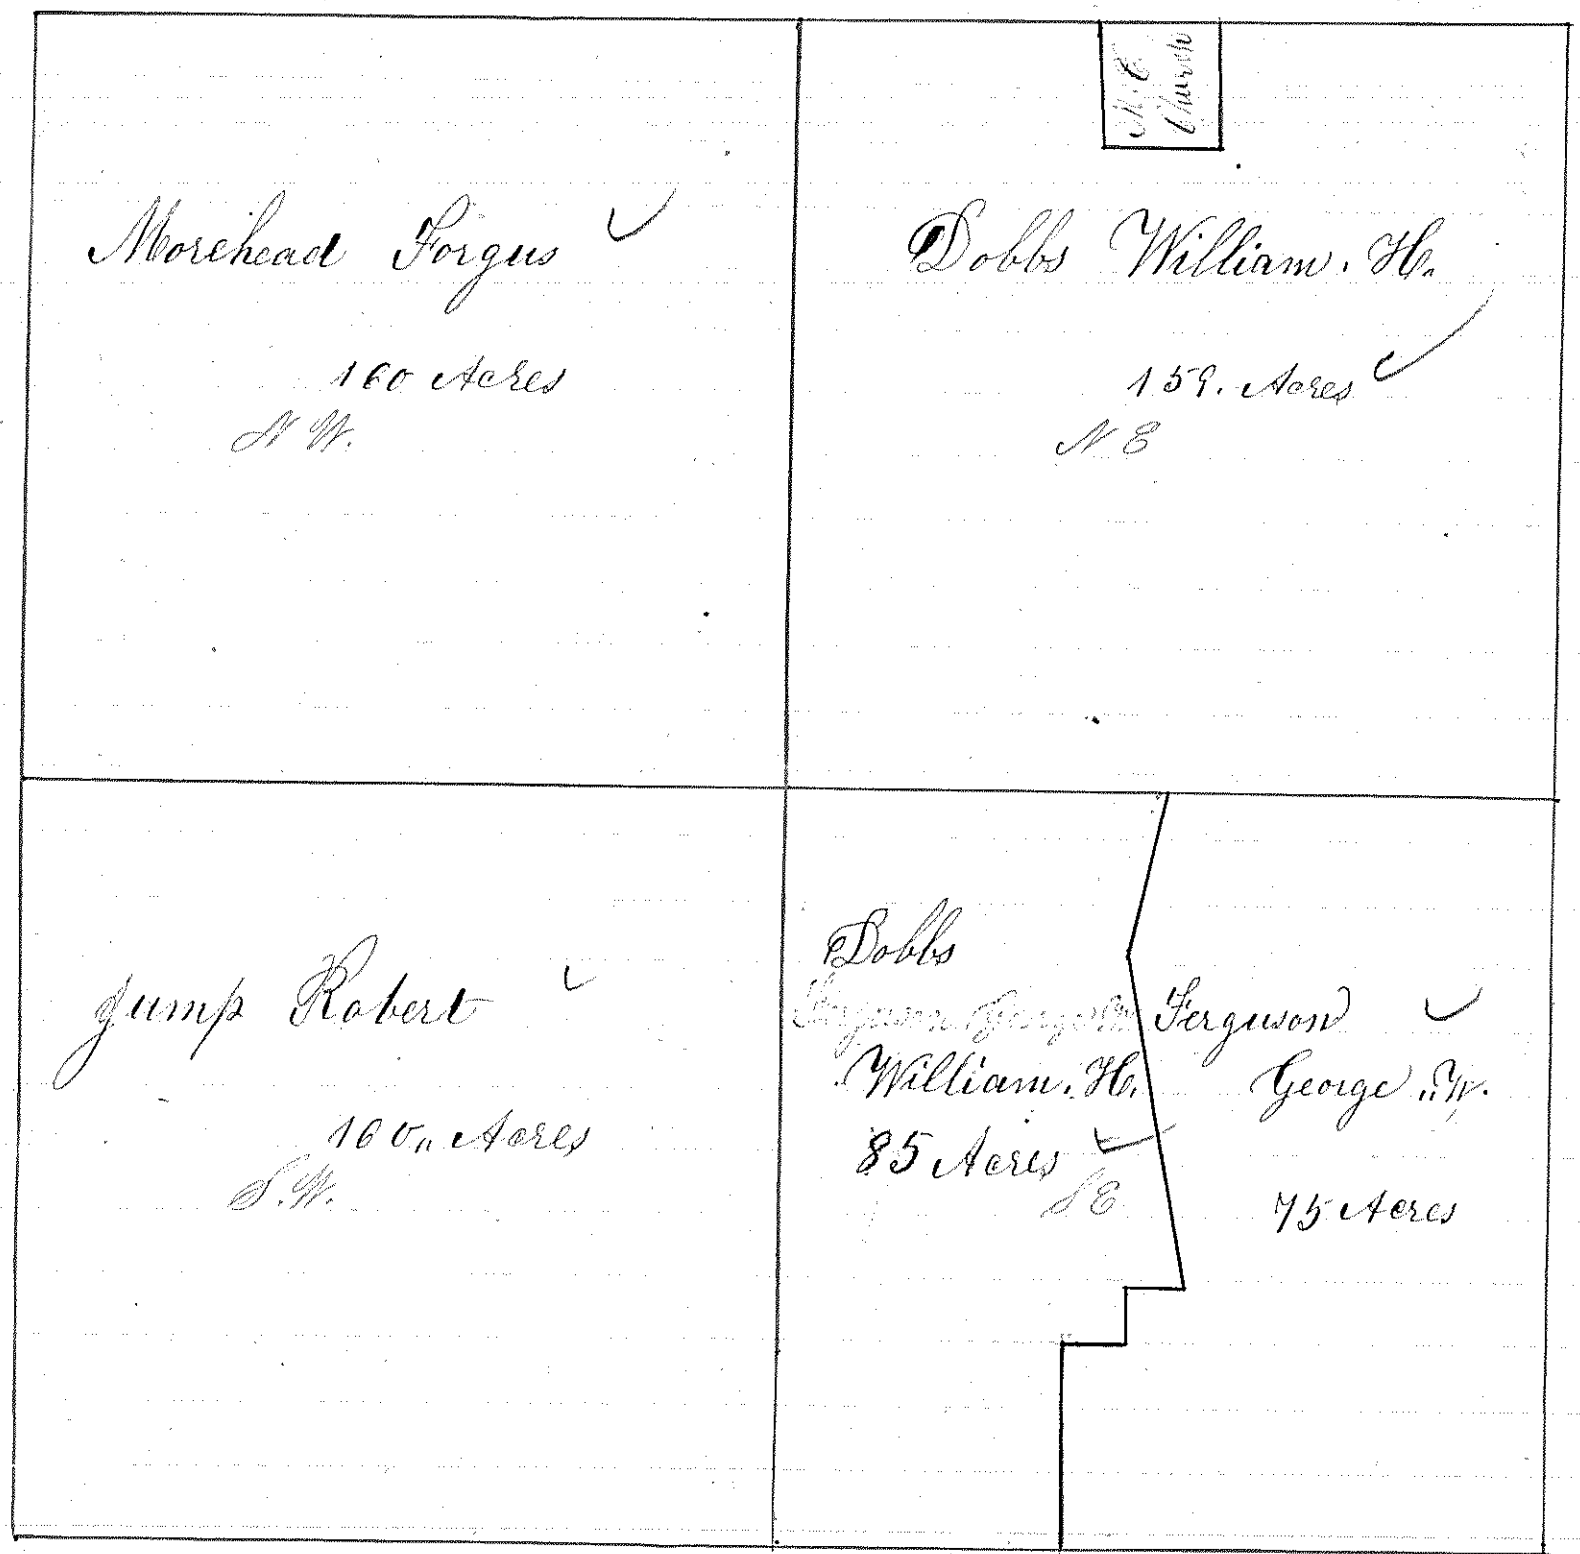 Morehead Forgus
160 Acres
N W.
M. E.
Church
Dobbs William. H.
159. Acres
N E
Jump Robert
160,, Acres
S. W.
Dobbs
William. H.
85 Acres
S E
Ferguson
George ,,W.
75 Acres